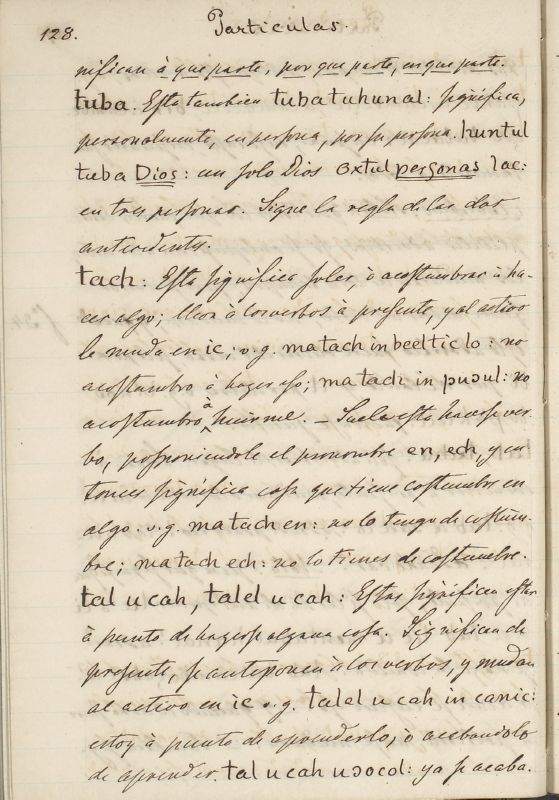 128. Particulas.
nifican à que parte, por que parte, en que parte.
tuba. Esta tambien tubatuhunal: significa,
personalmente, en persona, por su persona. huntul
tuba Dios: un solo Dios oxtul personas lae:
en tres personas. Sigue la regla de las dos
antecedentes.
tach: Esta significa soler, ò acostumbrar à ha-
cer algo; lleva à los verbos à presente, y al activo
le muda en ic; v.g. matach in beeltic lo: no
acostumbro à hazer eso; matach in puɔul: no
acostumbro à huirme. – Suele esta hacerse ver-
bo, posponiendole el pronombre en, ech, y en-
tonces significa cosa que tiene costumbre en
algo. v.g. matach en: no lo tengo de costum-
bre; matach ech: no lo tienes de costumbre.
tal u cah, talel u cah: Estas significan estar
à punto de hazerse alguna cosa. Significan de
presente, se anteponen à los verbos, y mudan
al activo en ic v.g. talel u cah in canic:
estoy à punto de aprenderlo, ò acabandolo
de aprender. tal u cah uɔocol: ya se acaba.